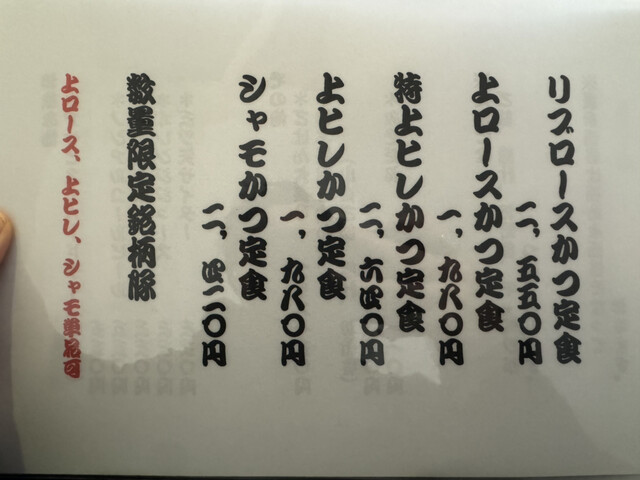 リブロースかつ定食
二、五五〇円
上ロースかつ定食
一、九八〇円
特上ヒレかつ定食
二、六四〇円
上ヒレかつ定食
一、九八〇円
シャモかつ定食
二、四二〇円
数量限定銘柄豚
上ロース、上ヒレ、シャモ単品可